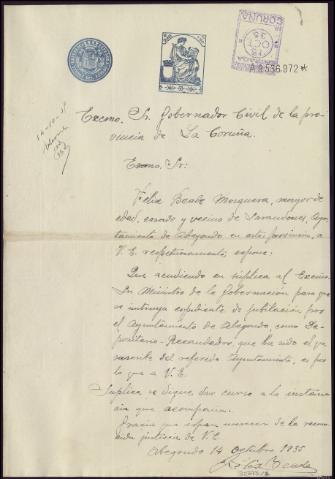 CORUÑA
OCT 35
A8536.972*
Excmo. Sr. Gobernador Civil de la pro-
vincia de La Coruña.
Excmo. Sr:
Félix Beade Mosquera, mayor de
edad, casado y vecino de Sarandones, Ayun-
tamiento de Abegondo en esta provincia, a
V. E. respetuosamente expone:
Que acudiendo en súplica al Excmo.
Sr. Ministro de la Gobernación para que
se instruya expediente de jubilación por
el Ayuntamiento de Abegondo, como De-
positario-Recaudador, que ha sido el que
suscribe del referido Ayuntamiento, es por
lo que a V. E.
Suplica se digne dar curso a la instan-
cia que acompaña.
Gracia que espera merecer de la reco-
nocida justicia de V. E.
Abegondo 14 octubre 1935
Félix Beade